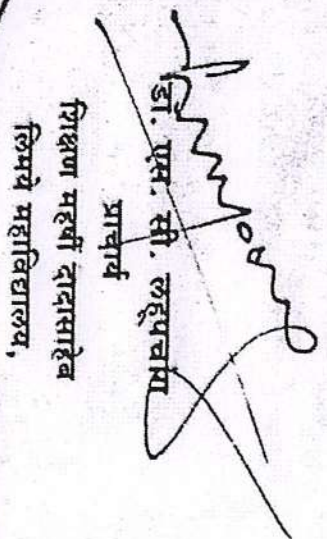 डॉ. एम. सी. लहूचामा
प्राचार्य
शिक्षण महर्षी दादासाहेब
लिमये महाविद्यालय,